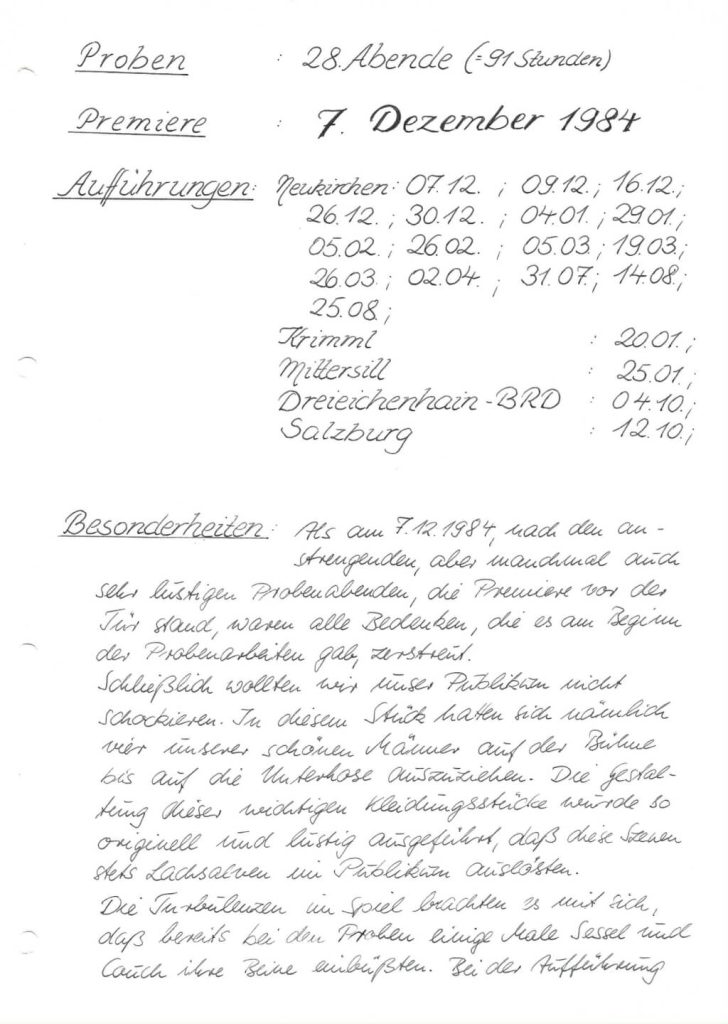 Proben : 28 Abende (= 91 Stunden)
Premiere : 7. Dezember 1984
Aufführungen: Neukirchen: 07.12. ; 09.12.; 16.12.;
26.12. ; 30.12. ; 04.01. ; 29.01.;
05.02. ; 26.02. ; 05.03.; 19.03.;
26.03. ; 02.04. ; 31.07.; 14.08.;
25.08.;
Krimml : 20.01.;
Mittersill : 25.01.;
Dreieichenhain - BRD : 04.10.;
Salzburg : 12.10.;
Besonderheiten: Als am 7.12.1984, nach den an-
strengenden, aber manchmal auch
sehr lustigen Probenabenden, die Premiere vor der
Tür stand, waren alle Bedenken, die es am Beginn
der Probenarbeiten gab, zerstreut.
Schließlich wollten wir unser Publikum nicht
schockieren. In diesem Stück hatten sich nämlich
vier unserer schönen Männer auf der Bühne
bis auf die Unterhose auszuziehen. Die Gestal-
tung dieser wichtigen Kleidungsstücke wurde so
originell und lustig ausgeführt, daß diese Szenen
stets Lachsalven im Publikum auslösten.
Die Turbulenzen im Spiel brachten es mit sich,
daß bereits bei den Proben einige Male Sessel und
Couch ihre Beine einbüßten. Bei der Aufführung